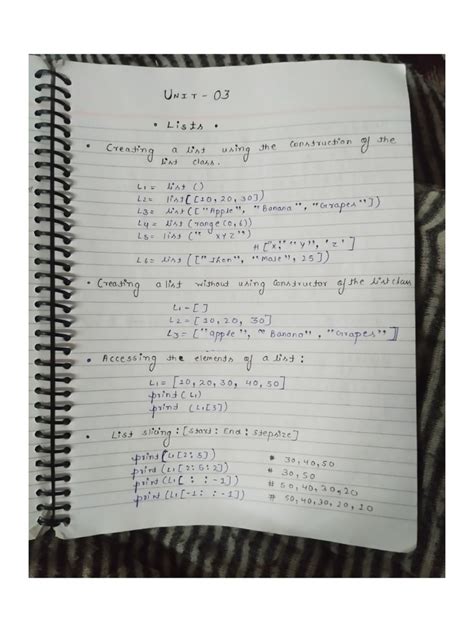 UNIT - 03
• Lists •
• Creating a list using the construction of the
list class.
L1 = list ()
L2 = list[[10, 20, 30])
L3 = list (["Apple", "Banana", "Grapes"])
L4 = list (range (0, 6))
L5 = list (" XYZ")
# ["X", "Y", 'Z']
L6 = list (["Jhon", "Male", 25])
• Creating a list without using constructor of the list class
L1 = [ ]
L2 = [10, 20, 30]
L3 = ["apple", "Banana", "Grapes"]
• Accessing the elements of a list :
L1 = [10, 20, 30, 40, 50]
print (L1)
print (L1[3])
• List slicing : [Start : End : Stepsize]
print(L1[2:5] # 30, 40, 50
print (L1[2:5:2]) # 30, 50
print (L1[ : : -1]) # 50, 40, 30, 20
print (L1[-1: : -1]) # 50, 40, 30, 20, 10